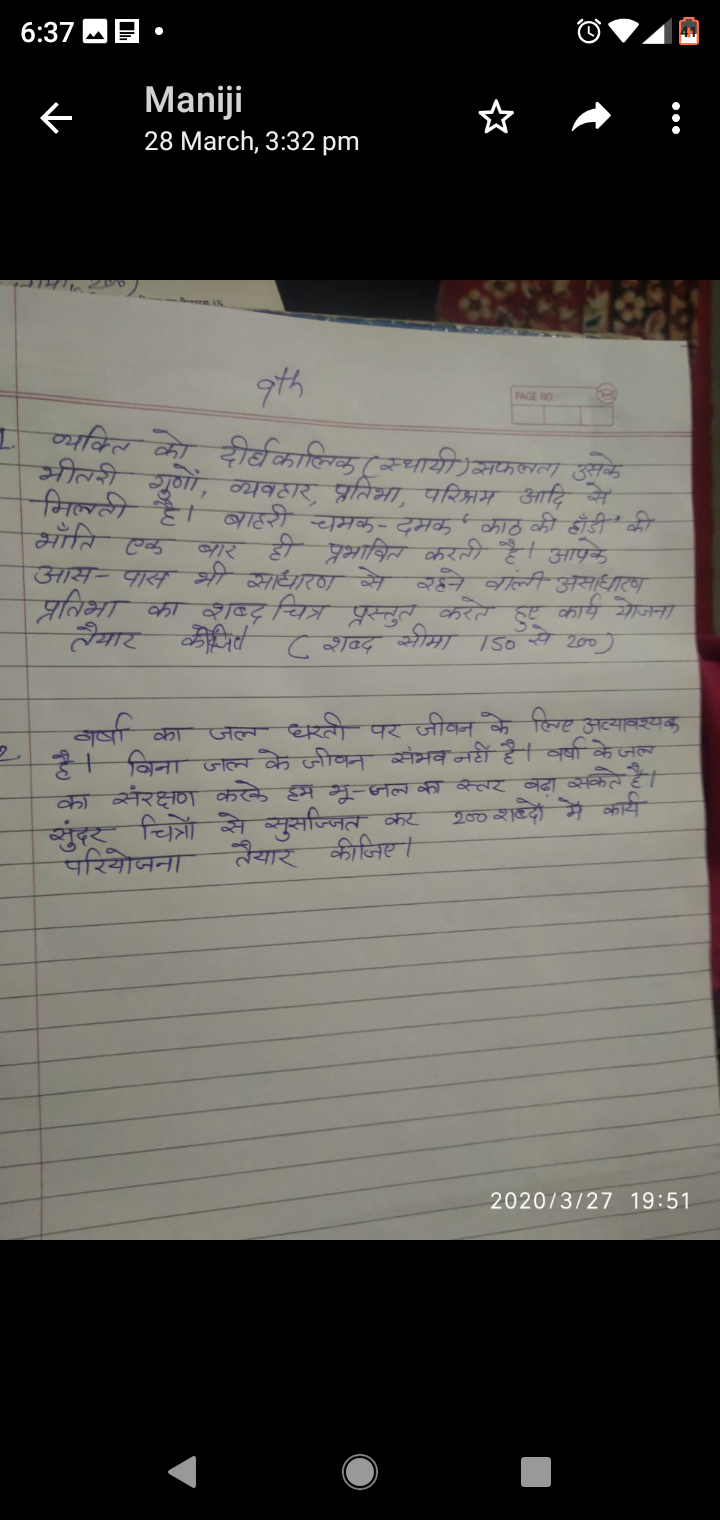 6:37
41
Maniji
28 March, 3:32 pm
200)
9th
PAGE NO.:
1. व्यक्ति को दीर्घकालिक (स्थायी) सफलता उसके
भीतरी गुणों, व्यवहार, प्रतिभा, परिश्रम आदि से
मिलती है। बाहरी चमक-दमक 'काठ की हाँडी' की
भाँति एक बार ही प्रभावित करती है। आपके
आस-पास भी साधारण से रहने वाली असाधारण
प्रतिभा का शब्द चित्र प्रस्तुत करते हुए कार्य योजना
तैयार कीजिए। (शब्द सीमा 150 से 200)
2. वर्षा का जल धरती पर जीवन के लिए अत्यावश्यक
है। बिना जल के जीवन संभव नहीं है। वर्षा के जल
का संरक्षण करके हम भू-जल का स्तर बढ़ा सकते हैं।
सुंदर चित्रों से सुसज्जित कर 200 शब्दों में कार्य
परियोजना तैयार कीजिए।
2020/3/27 19:51